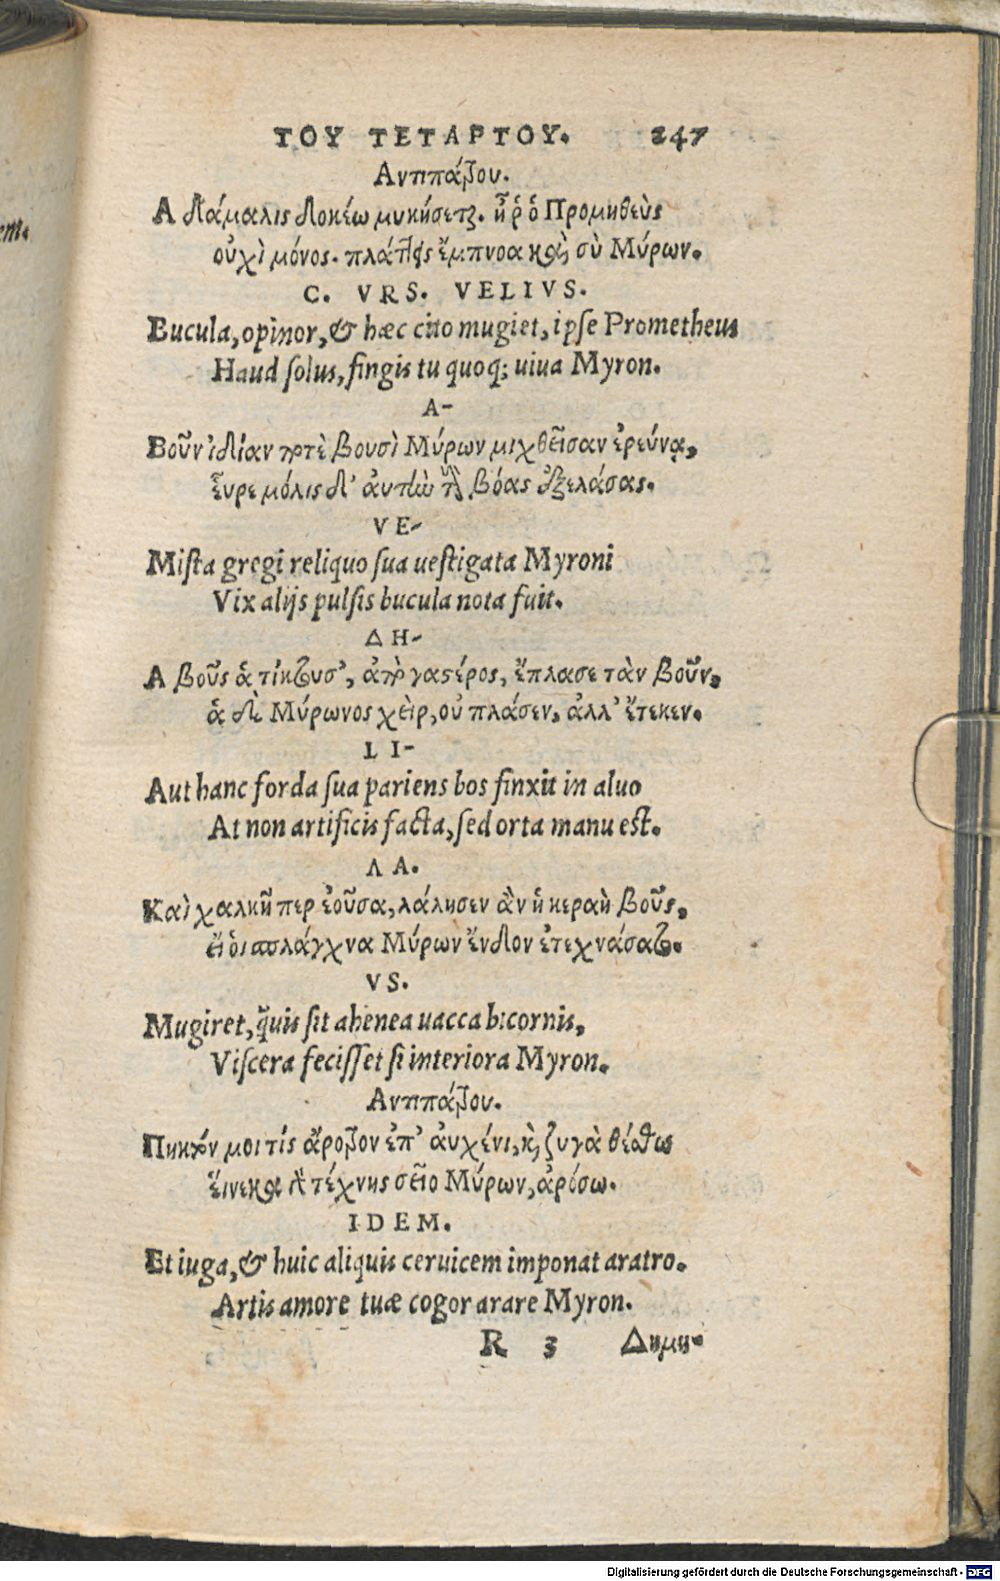 ΤΟΥ ΤΕΤΑΡΤΟΥ. 247
Αντιπάτρου.
Α δάμαλις δοκέω μυκήσεται. ἦ ῥ ὁ Προμηθεὺς
οὐχὶ μόνος. πλάττεις ἔμπνοα καὶ σὺ Μύρων.
C. VRS. VELIVS.
Bucula, opinor, & hæc cito mugiet, ipse Prometheus
Haud solus, fingis tu quoq; uiua Myron.
Α-
Βοῦν ἰδίαν ποτὲ βουσὶ Μύρων μιχθεῖσαν ἐρεύνα,
εὗρε μόλις δ' αὐτὴν τὰς βόας ἐξελάσας.
VE-
Mista gregi reliquo sua uestigata Myroni
Vix alijs pulsis bucula nota fuit.
ΔΗ-
Α βοῦς ἁ τίκτουσ', ἀπὸ γαστέρος, ἔπλασε τὰν βοῦν,
ἁ δὲ Μύρωνος χεὶρ, οὐ πλάσεν, ἀλλ' ἔτεκεν.
LI-
Aut hanc forda sua pariens bos finxit in aluo
At non artificis facta, sed orta manu est.
ΛΑ.
Καὶ χαλκῆ περ ἐοῦσα, λάλησεν ἂν ἡ κεραὴ βοῦς,
εἴ οἱ σπλάγχνα Μύρων ἔνδον ἐτεχνάσατο.
VS.
Mugiret, q̃uis sit ahenea uacca bicornis,
Viscera fecisset si interiora Myron.
Αντιπάτρου.
Πηκτόν μοι τίς ἄροτρον ἐπ' αὐχένι, κ̀ ζυγὰ θέσθω
εἵνεκα τέχνης σεῖο Μύρων, ἀρόσω.
IDEM.
Et iuga, & huic aliquis ceruicem imponat aratro.
Artis amore tuæ cogor arare Myron.
R 3 Δημη-
em.
Digitalisierung gefördert durch die Deutsche Forschungsgemeinschaft - DFG